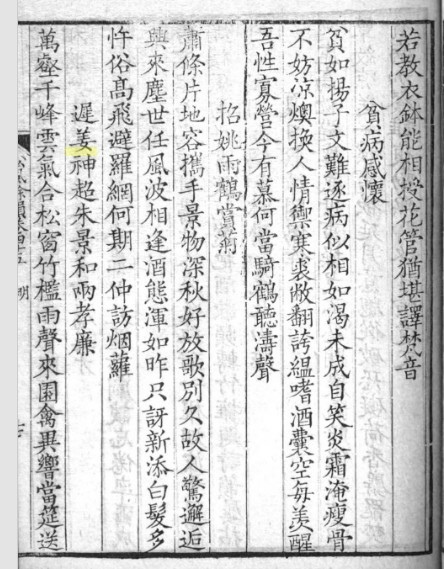 若教衣鉢能相授花管猶堪譯梵音
貧病感懷
貧如楊子文難逐病似相如渴未成自笑炎霜淹瘦骨
不妨涼燠換人情禦寒裘敝翻誇縕嗜酒囊空每羡醒
吾性寡營今有慕何當騎鶴聽濤聲
招姚雨鶴賞菊
蕭條片地容攜手景物深秋好放歌別久故人驚邂逅
興來塵世任風波相逢酒態渾如昨只訝新添白髮多
忤俗高飛避羅網何期二仲訪烟蘿
遲姜神超朱景和兩孝廉
萬壑千峰雲氣合松窗竹檻雨聲來園禽異響當筵送